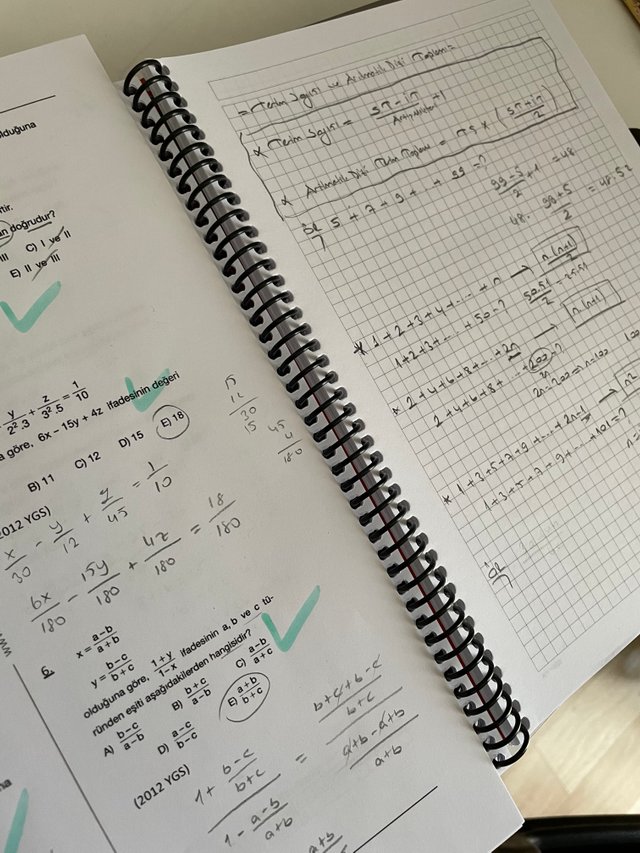 olduğuna
tir.
an doğrudur?
III C) I ve II
E) II ve III
y/2².3 + z/3².5 = 1/10
a göre, 6x – 15y + 4z ifadesinin değeri
B) 11 C) 12 D) 15 E) 18
(2012 YGS)
x/30 - y/12 + z/45 = 1/10
6x/180 - 15y/180 + 4z/180 = 18/180
15
12
30
15 45
4
180
6. x = a–b/a+b
y = b–c/b+c
olduğuna göre, 1+y/1–x ifadesinin a, b ve c tü-
ründen eşiti aşağıdakilerden hangisidir?
A) b–c/a–b B) b+c/a–b C) a–b/a+c
D) a–c/b–c E) a+b/b+c
(2012 YGS)
1 + b-c/b+c / 1 - a-b/a+b = b+c+b-c/b+c / a+b-a+b/a+b
a+b
www
= Terim Sayısı ve Aritmetik Dizi Toplamı =
* Terim Sayısı = ST-İT/Artış miktarı +1
* Aritmetik Dizi Terim Toplamı = TS x (ST+İT/2)
Ör/ 5 + 7 + 9 + .. + 99 = ?
99-5/2 + 1 = 48
48. 99+5/2 = 48.52
* 1+2+3+4+...+n → n.(n+1)/2
1+2+3+...+50=? 50.51/2 = 25.51
* 2+4+6+8+...+2n → n.(n+1)
2+4+6+8+...+200=?
2n=200 n=100
* 1+3+5+7+9+...+2n-1 → n²
1+3+5+7+9+...+101=?
Ör